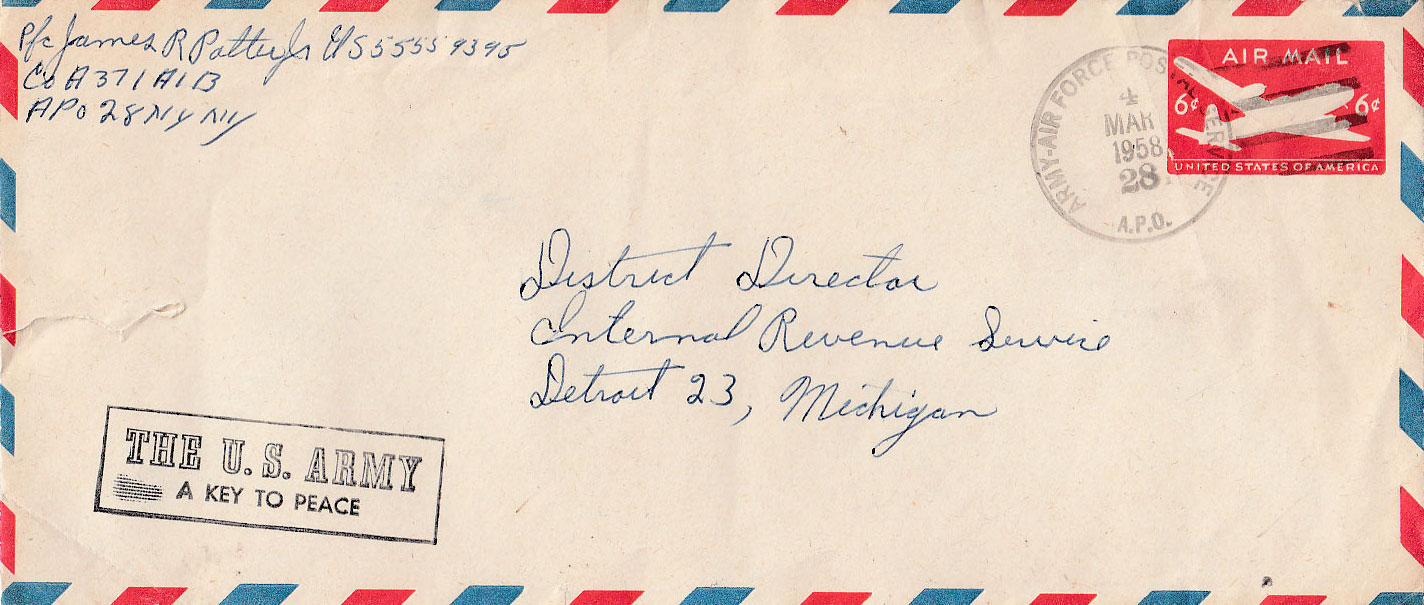 Pfc James R Potter Jr US 5555 9395
Co A 371 AIB
APO 28 NY NY
ARMY-AIR FORCE POSTAL SERVICE
4
MAR
1958
28
A.P.O.
AIR MAIL
6¢ 6¢
UNITED STATES OF AMERICA
District Director
Internal Revenue Service
Detroit 23, Michigan
THE U.S. ARMY
A KEY TO PEACE